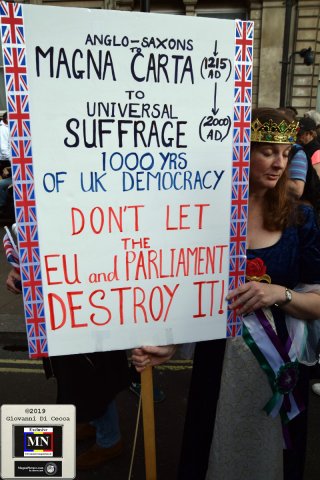 ANGLO-SAXONS
TO
MAGNA CARTA (1215 AD)
TO
UNIVERSAL
SUFFRAGE (2000 AD)
1000 YRS
OF UK DEMOCRACY
DON'T LET
THE
EU and PARLIAMENT
DESTROY IT!
©2019
Giovanni Di Cecca
Exclusive
MN